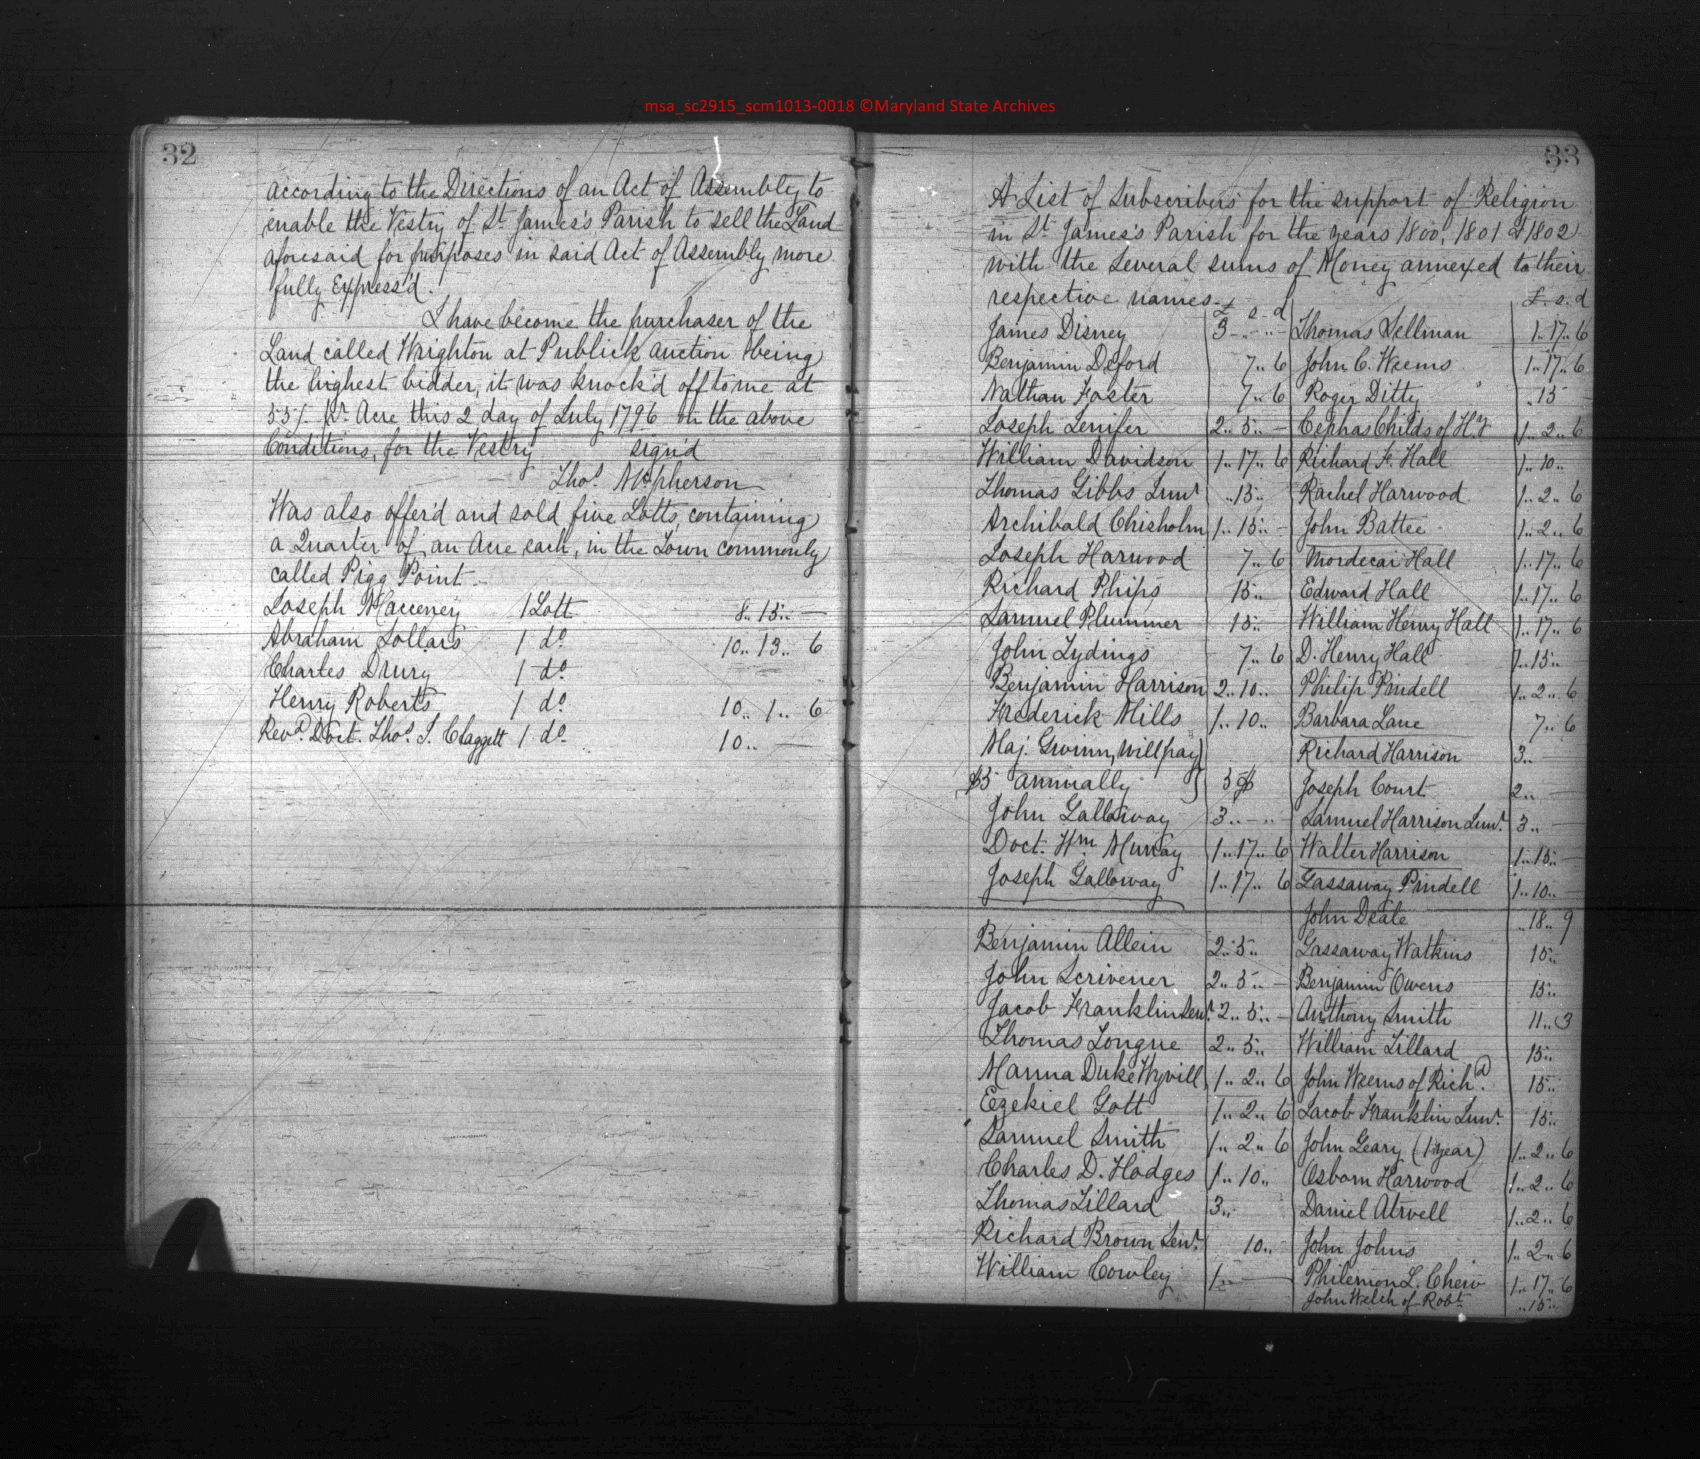 msa_sc2915_scm1013-0018 ©Maryland State Archives
32
according to the Directions of an Act of Assembly to
enable the Vestry of St James's Parish to sell the Land
aforesaid for purposes in said Act of Assembly more
fully Express'd.
I have become the purchaser of the
Land called Wrighton at Publick auction being
the highest bidder, it was knock'd off to me at
55/. pr. Acre this 2 day of July 1796 on the above
Conditions, for the Vestry sign'd
Thos. McPherson
Was also offer'd and sold five Lotts, containing
a Quarter of an Acre each, in the Town commonly
called Pigg Point
Joseph Macceney 1 Lott 8.. 15.. —
Abraham Sollars 1 do. 10.. 13.. 6
Charles Drury 1 do.
Henry Roberts 1 do. 10.. 1.. 6
Revd. Doct. Thos. J. Claggett 1 do. 10.. —
33
A List of Subscribers for the support of Religion
in St James's Parish for the years 1800, 1801 & 1802
with the several sums of Money annexed to their
respective names.
£ s. d
£. s. d
James Disney 3 - .. -
Benjamin Deford 7.. 6
Nathan Foster 7.. 6
Joseph Jenifer 2.. 5.. —
William Davidson 1.. 17.. 6
Thomas Gibbs Junr. ..15..
Archibald Chisholm 1.. 15.. -
Joseph Harwood 7.. 6
Richard Phips 15..
Samuel Plummer 15..
John Lydings 7.. 6
Benjamin Harrison 2.. 10..
Frederick Mills 1.. 10..
Maj. Gwinn, will pay
$5 annually 5 $
John Galloway 3.. - .. -
Doct. Wm Murray 1.. 17.. 6
Joseph Galloway 1.. 17.. 6
Benjamin Allein 2.. 5..
John Scrivener 2.. 5.. —
Jacob Franklin Senr. 2.. 5.. -
Thomas Tongue 2.. 5..
Marma Duke Wyvill 1.. 2.. 6
Ezekiel Gott 1.. 2.. 6
Samuel Smith 1.. 2.. 6
Charles D. Hodges 1.. 10..
Thomas Tillard 3..
Richard Brown Senr. 10..
William Cowley 1.. —
Thomas Sellman 1.. 17.. 6
John C. Weems 1.. 17.. 6
Roger Ditty .. 15
Cephas Childs of Hy 1.. 2.. 6
Richard H. Hall 1.. 10..
Rachel Harwood 1.. 2.. 6
John Battee 1.. 2.. 6
Mordecai Hall 1.. 17.. 6
Edward Hall 1.. 17.. 6
William Henry Hall 1.. 17.. 6
D. Henry Hall 1.. 15..
Philip Pindell 1.. 2.. 6
Barbara Lane 7.. 6
Richard Harrison 3..
Joseph Court 2.. —
Samuel Harrison Junr. 3.. —
Walter Harrison 1.. 15.. —
Gassaway Pindell 1.. 10.. —
John Deale .. 18.. 9
Gassaway Watkins 15..
Benjamin Owens 15..
Anthony Smith 11.. 3
William Tillard 15..
John Weems of Richd. 15..
Jacob Franklin Junr. 15..
John Geary (1 year) 1.. 2.. 6
Osborn Harwood 1.. 2.. 6
Daniel Atwell 1.. 2.. 6
John Johns 1.. 2.. 6
Philemon L. Chew 1.. 17.. 6
John Welch of Robt .. 15..